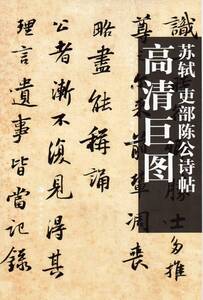 苏轼 吏部陈公诗帖
高清巨图
識
士多推
尊
來前輩凋喪
略盡能稱誦
公者漸不復見得其
理言遺事皆當記錄